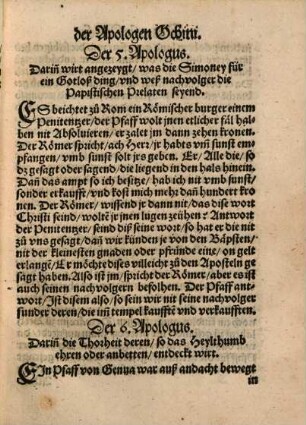 der Apologen Ochini.
Der 5. Apologus.
Dariñ wirt angezeygt / was die Simoney für
ein Gotloß ding / und weß nachvolger die
Papistischen Prelaten seyend.
ES beichtet zů Rom ein Römischer burger einem
Penitentzer / der Pfaff wolt jnen etlicher fäl hal=
ben nit Absoluieren / er zalet jm dann zehen kronen.
Der Römer spricht / ach Herr / jr habts vm̃ sunst em
pfangen / vmb sunst solt jrs geben. Er / Alle die / so
dz gesagt oder sagend / die liegend in den hals hinein.
Dañ das ampt so ich besitze / hab ich nit vmb sunst /
sonder erkaufft / vnd kost mich mehr dañ hundert kro
nen. Der Römer / wissend jr dann nit / das dise wort
Christi seind / wolte jr jnen lugen zeühen? Antwort
der Penitentzer / seind diß seine wort / so hat er die nit
zů vns gesagt / dañ wir künden je von den Bäpsten /
nit der kleinesten gnaden oder pfründe eine / on gelt
erlange / Er möchte dises villeicht zů den Aposteln ge
sagt haben. Also ist jm / spricht der Römer / aber es ist
auch seinen nachvolgern befolhen. Der Pfaff ant=
wort / Ist disem also / so sein wir nit seine nachvolger
sunder deren / die im̃ tempel kaufft vnd verkaufften.
Der 6. Apologus.
Dariñ die Thorheit deren / so das Heylthumb
ehren oder anbetten / entdeckt wirt.
EIn Pfaff von Genua war auß andacht bewegt